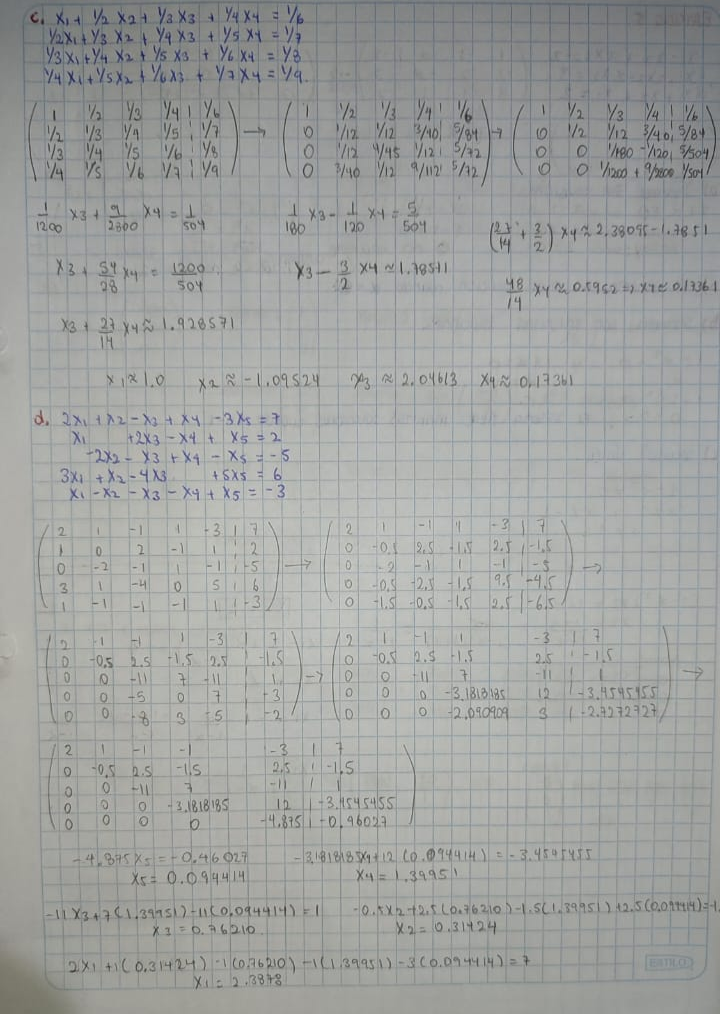 c. x₁ + 1/2 x₂ + 1/3 x₃ + 1/4 x₄ = 1/6
1/2x₁ + 1/3 x₂ + 1/4 x₃ + 1/5 x₄ = 1/7
1/3x₁ + 1/4 x₂ + 1/5 x₃ + 1/6 x₄ = 1/8
1/4 x₁ + 1/5x₂ + 1/6x₃ + 1/7 x₄ = 1/9.
1 1/2 1/3 1/4 | 1/6 → 1 1/2 1/3 1/4 | 1/6 → 1 1/2 1/3 1/4 | 1/6
1/2 1/3 1/4 1/5 | 1/7 0 1/12 1/12 3/40 | 5/84 0 1/2 1/12 3/40 | 5/84
1/3 1/4 1/5 1/6 | 1/8 0 1/12 4/45 1/12 | 5/72 0 0 1/180 -1/120 | 5/504
1/4 1/5 1/6 1/7 | 1/9 0 3/40 1/12 9/112 | 5/72 0 0 1/1200 + 9/2800 1/504
1/1200 x₃ + 9/2800 x₄ = 1/504 1/180 x₃ - 1/120 x₄ = 5/504 (27/14 + 3/2) x₄ ≈ 2.38095 - 1.7851
x₃ + 54/28 x₄ = 1200/504 x₃ - 3/2 x₄ ≈ 1.78511 48/14 x₄ ≈ 0.5952 => x₄ ≈ 0.17361
x₃ + 27/14 x₄ ≈ 1.928571
x₁ ≈ 1.0 x₂ ≈ -1.09524 x₃ ≈ 2.04613 x₄ ≈ 0.17361
d. 2x₁ + x₂ - x₃ + x₄ - 3x₅ = 7
x₁ + 2x₃ - x₄ + x₅ = 2
-2x₂ - x₃ + x₄ - x₅ = -5
3x₁ + x₂ - 4x₃ + 5x₅ = 6
x₁ - x₂ - x₃ - x₄ + x₅ = -3
2 1 -1 1 -3 | 7 → 2 1 -1 1 -3 | 7 →
1 0 2 -1 1 | 2 0 -0,5 2,5 -1,5 2,5 | -1,5
0 -2 -1 1 -1 | -5 0 -2 -1 1 -1 | -5
3 1 -4 0 5 | 6 0 -0,5 -2,5 -1,5 9,5 | -4,5
1 -1 -1 -1 1 | -3 0 -1,5 -0,5 -1,5 2,5 | -6,5
2 -1 -1 1 -3 | 7 → 2 1 -1 1 -3 | 7 →
0 -0,5 2,5 -1,5 2,5 | -1,5 0 -0,5 2,5 -1,5 2,5 | -1,5
0 0 -11 7 -11 | 1 0 0 -11 7 -11 | 1
0 0 -5 0 7 | -3 0 0 0 -3,1818185 12 | -3,4545455
0 0 -8 3 -5 | -2 0 0 0 -2,090909 3 | -2,7272727
2 1 -1 -1 -3 | 7
0 -0,5 2,5 -1,5 2,5 | -1,5
0 0 -11 7 -11 | 1
0 0 0 -3,1818185 12 | -3,4545455
0 0 0 0 -4,875 | -0,46027
-4.875x₅ = -0.46027 -3,1818185x₄+12 (0.094414) = -3.4545455
x₅ = 0.094414 x₄ = 1.39951
-11x₃+7(1.39951)-11(0.094414)=1 -0.5x₂+2.5(0.76210)-1.5(1.39951)+2.5(0.094414)=-1.
x₃ = 0.76210 x₂ = 0.31424
2x₁ + 1(0.31424) - 1(0.76210) - 1(1.39951) - 3(0.094414) = 7
x₁ = 2.3878
ESTILO